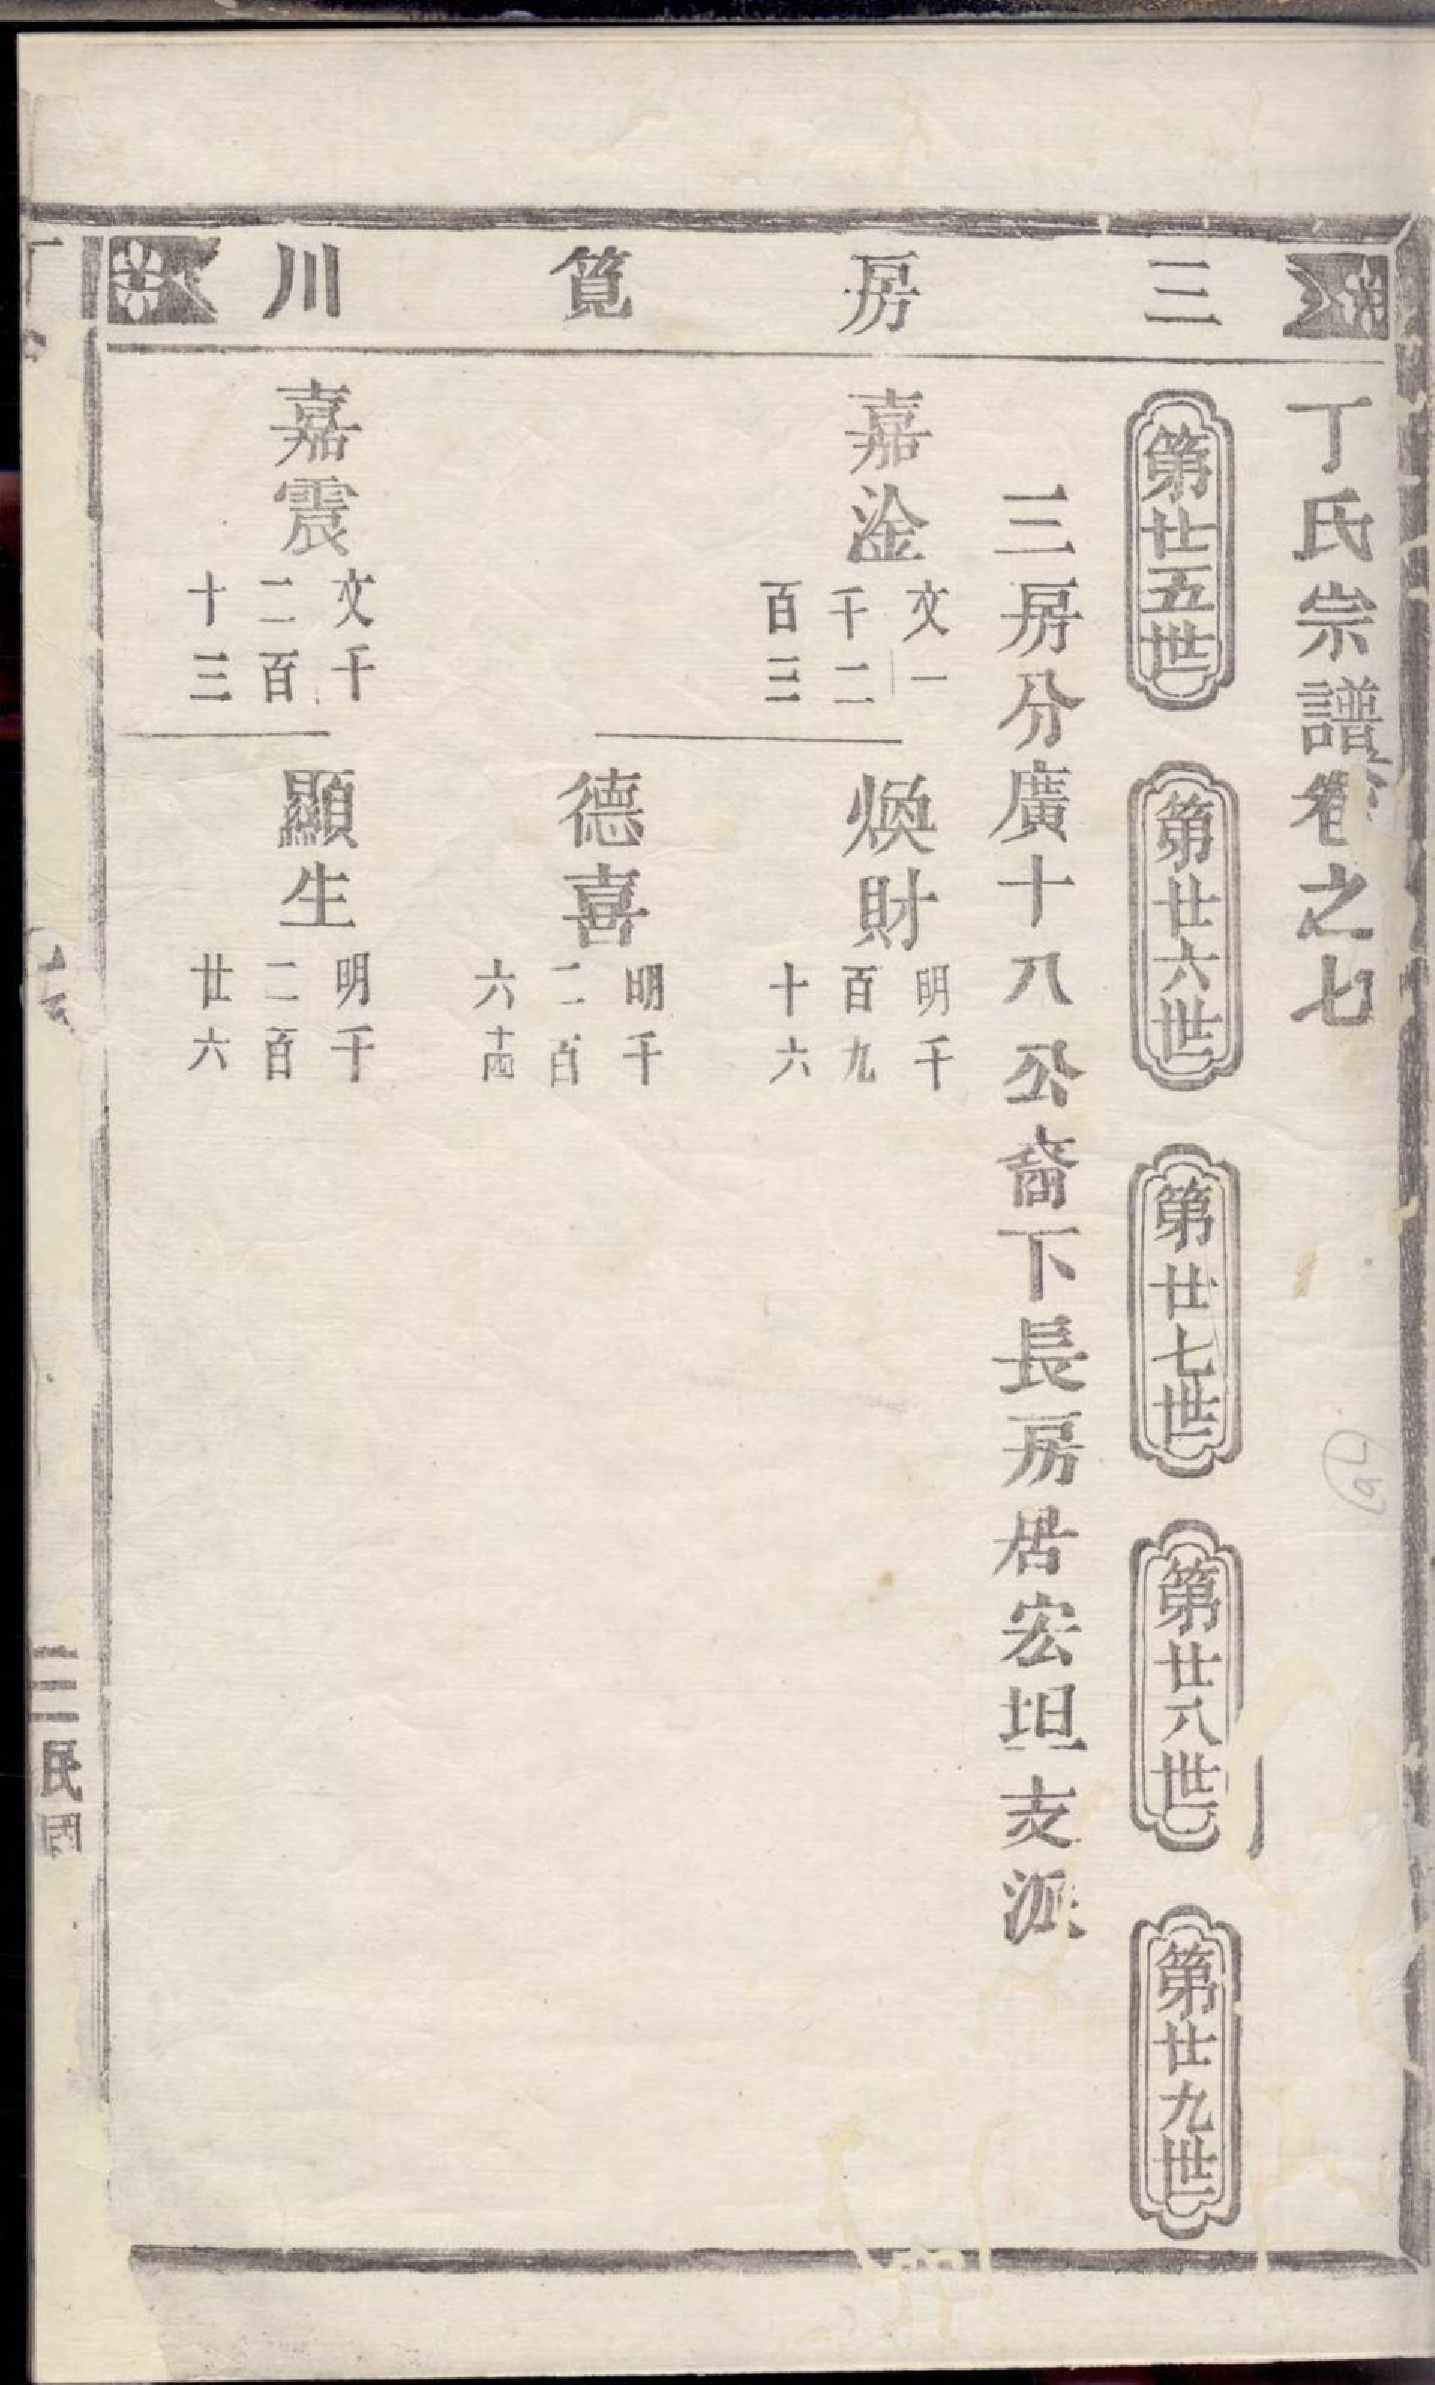 三房筧川
丁氏宗譜卷之七
第廿五世
第廿六世
第廿七世
第廿八世
第廿九世
三房分廣十八公裔下長房居宏坦支派
嘉淦
文一
千二
百三
煥財
明千
百九
十六
德喜
明千
二百
六十四
嘉震
文千
二百
十三
顯生
明千
二百
廿六
三民國